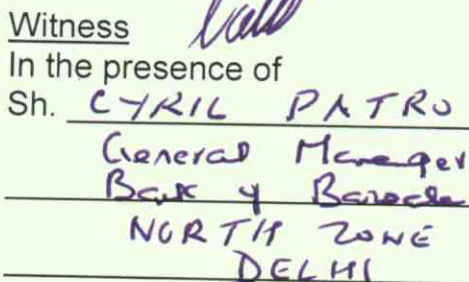 Witness
In the presence of
Sh. CYRIL PATRO
General Manager
Bank of Baroda
NORTH ZONE
DELHI